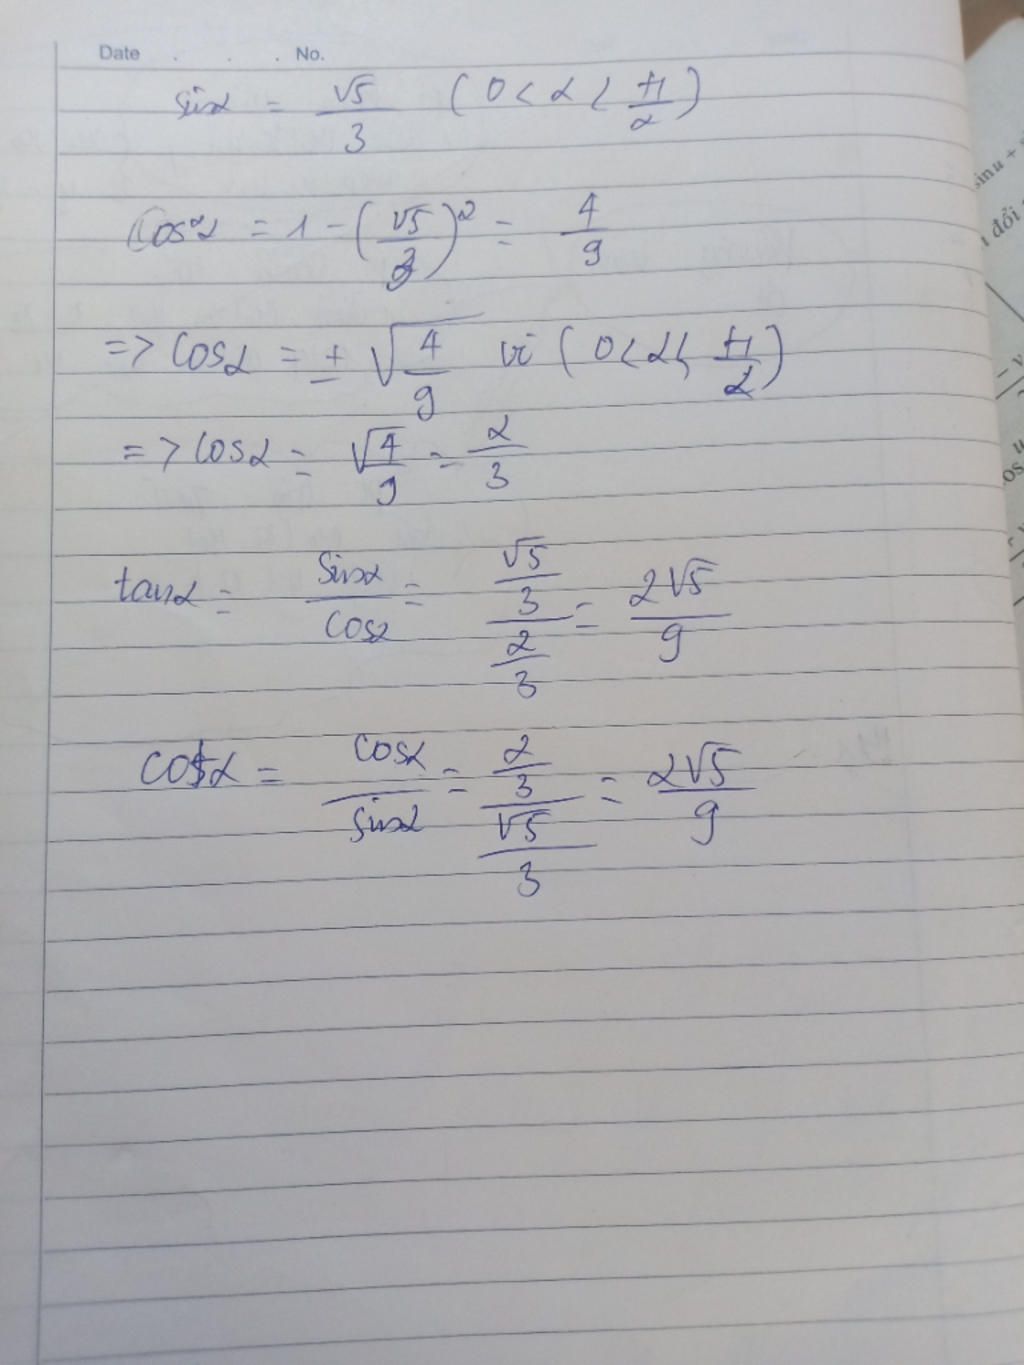 Date . . . No.
sinα = √5/3 (0 < α < π/2)
Cos²α = 1 - (√5/3)² = 4/9
=> Cosα = ± √4/9 vì (0 < α < π/2)
=> Cosα = √4/9 = 2/3
tanα = sinα/cosα = √5/3 / 2/3 = 2√5/9
cotα = cosα/sinα = 2/3 / √5/3 = 2√5/9
sinu +
đổi